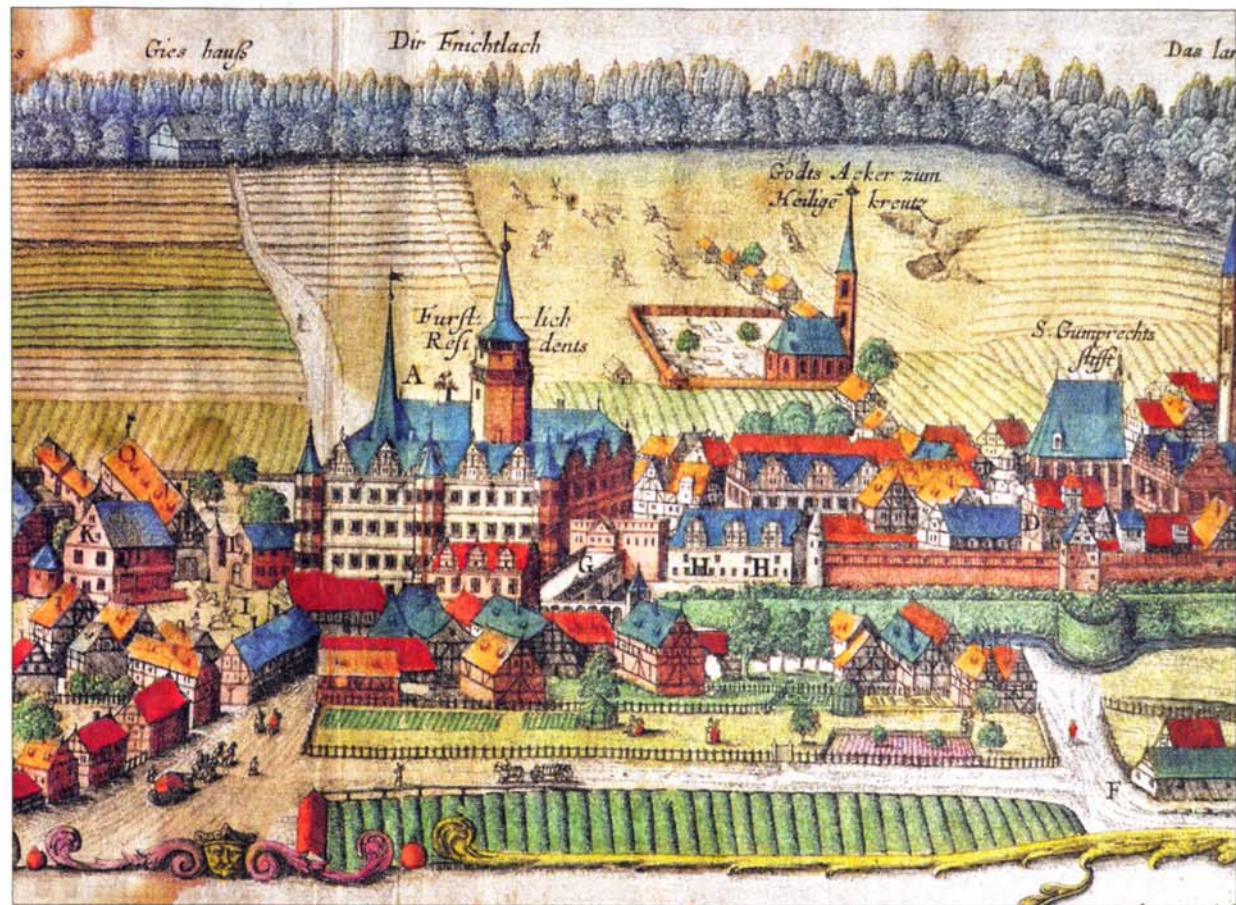 s
Gies hauß
Dir Fnichtlach
Das lan
Godts Acker zum
Heilige kreutz
Furst- lich
Resi dents
S. Gumprechts
stifft
A
O
K
L
G
H H
D
I
F